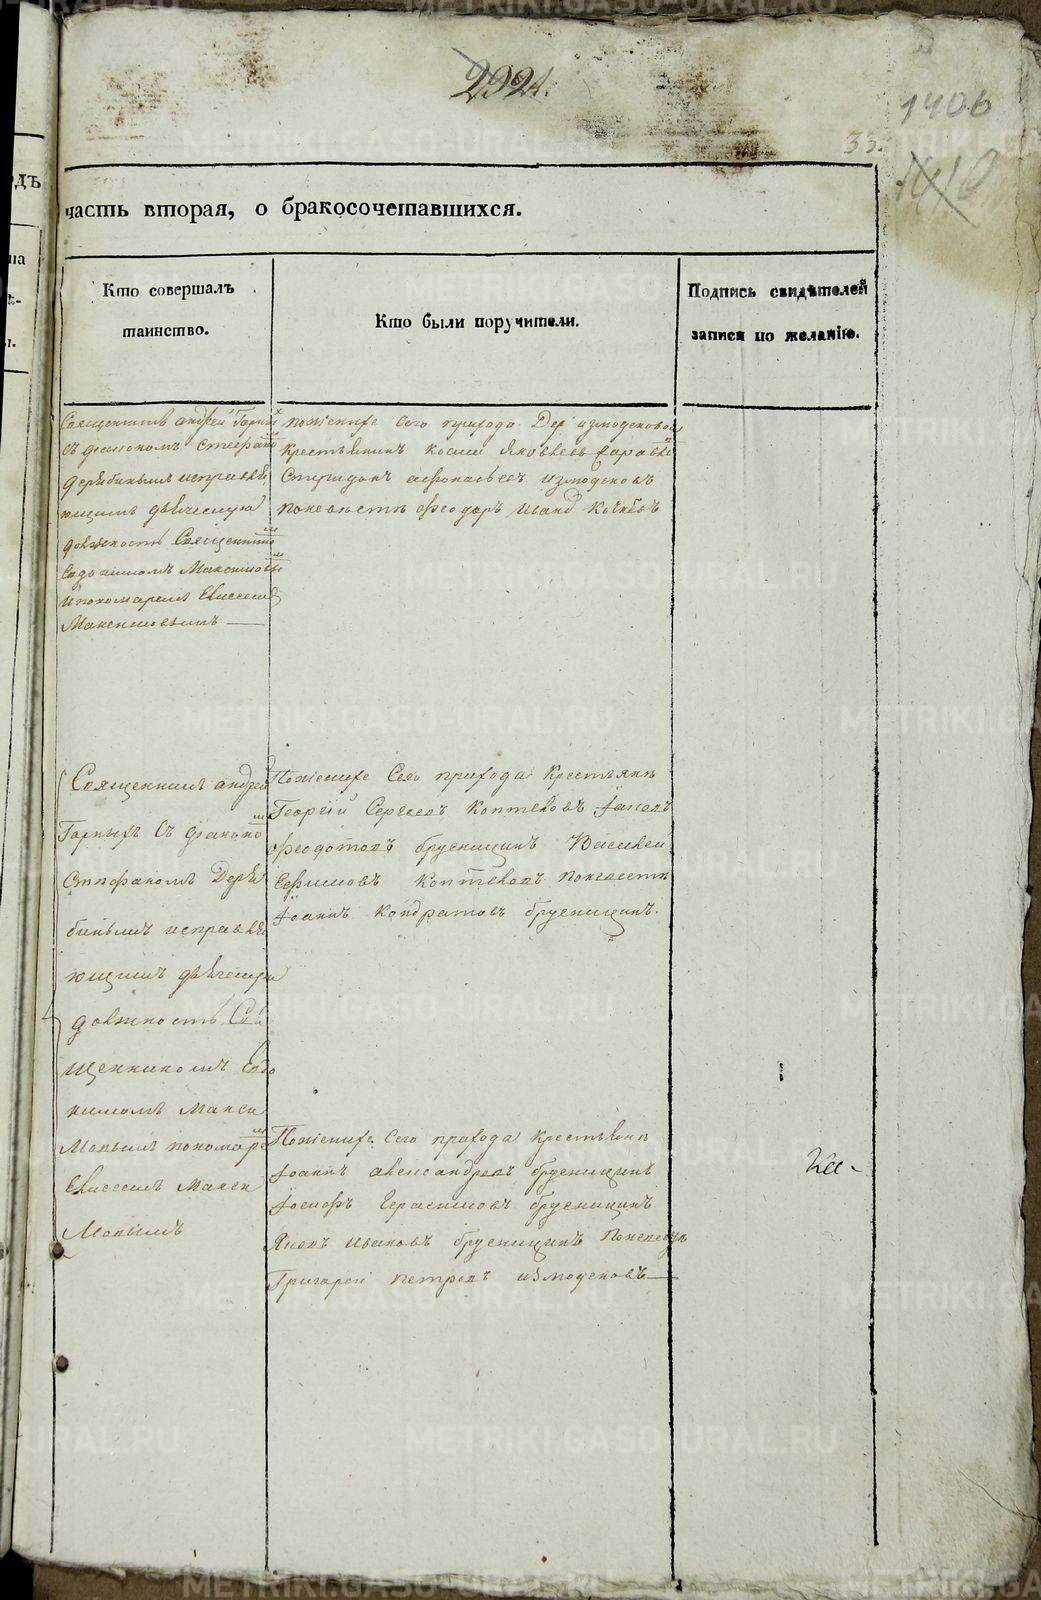 2921.
1406
35.
1410
часть вторая, о бракосочетавшихся.
Кто совершалъ
таинство.
Кто были поручители.
Подпись свидѣтелей
записи по желанію.
Священникъ андрей Горныхъ
съ діакономъ Стефаномъ
Дерябинымъ исправля
ющимъ дьяческую
должность Священникомъ
Евдокимомъ Максимовымъ
и пономаремъ Елисеемъ
Максимовымъ
пожениху сего прихода Дер измоденовой
крестьянинъ косма Яковлевъ
Спиридонъ афонасьевъ измоденовъ
поневѣстѣ феодоръ
Священникъ андрей
Горныхъ Съ діакономъ
Стефаномъ Деря
бинымъ исправля
ющимъ дьяческую
должность Свя
щенникомъ Евдо
кимомъ Макси
мовымъ пономаремъ
Елисеемъ Макси
мовымъ
Пожениху Сего прихода Крестьянъ
Георгій Сергеевъ Коптеловъ
феодотовъ брусницинъ Василей
Ефимовъ Коптеловъ Поневестѣ
Іоаннъ Кондратовъ брусницинъ.
Пожениху Сего прихода Крестьянъ
Іоаннъ александровъ брусницинъ
Іосифъ Герасимовъ брусницинъ
Яковъ Ивановъ брусницинъ
Григорей петровъ измоденовъ
METRIKI.GASO-URAL.RU